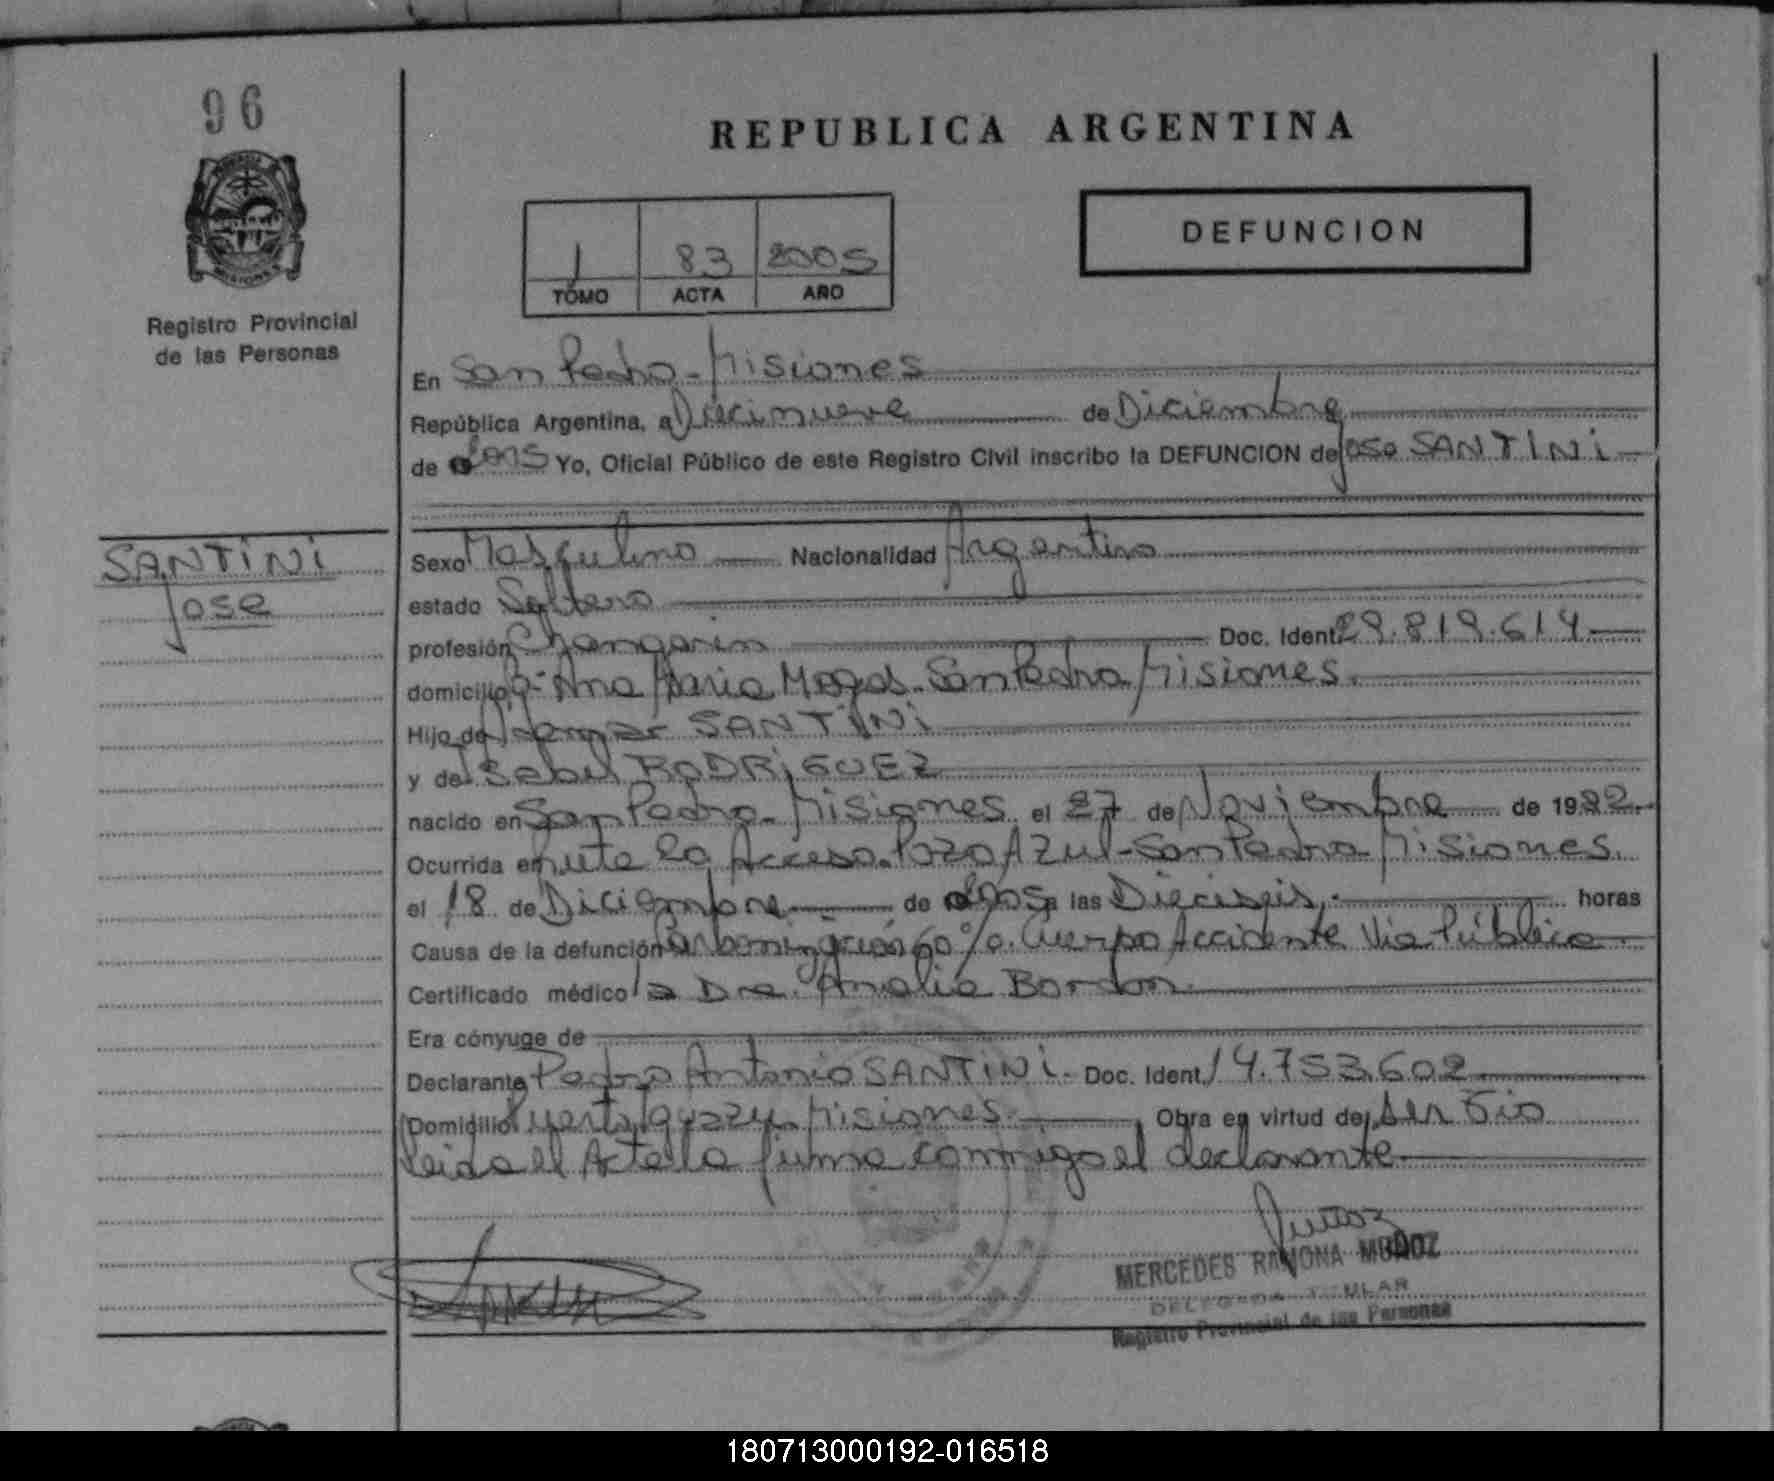 96
REPUBLICA ARGENTINA
DEFUNCION
1 83 2005
TOMO ACTA AÑO
Registro Provincial
de las Personas
En San Pedro - Misiones
República Argentina, a Diecinueve de Diciembre
de 2005 Yo, Oficial Público de este Registro Civil inscribo la DEFUNCION de Jose SANTINI
SANTINI
Jose
Sexo Masculino Nacionalidad Argentino
estado Soltero
profesión Changarin Doc. Ident. 29.819.614
domicilio Bº Ana Maria Mogas. San Pedro Misiones.
Hijo de SANTINI
y de Isabel RODRIGUEZ
nacido en San Pedro. Misiones el 27 de Noviembre de 1982.
Ocurrida en Ruta 20 Acceso. Pozo Azul - San Pedro Misiones.
el 18 de Diciembre de 2005 a las Dieciseis. horas
Causa de la defunción Carbonización 60%. Cuerpo Accidente Via Pública
Certificado médico la Dra. Analia Bordon.
Era cónyuge de
Declarante Pedro Antonio SANTINI. Doc. Ident. 14.753.602
Domicilio Puerto Iguazu. Misiones. Obra en virtud de Ser Tio
leida el Acta la firma conmigo el declarante.
MERCEDES RAMONA MUÑOZ
DELEGADA TITULAR
Registro Provincial de las Personas
180713000192-016518